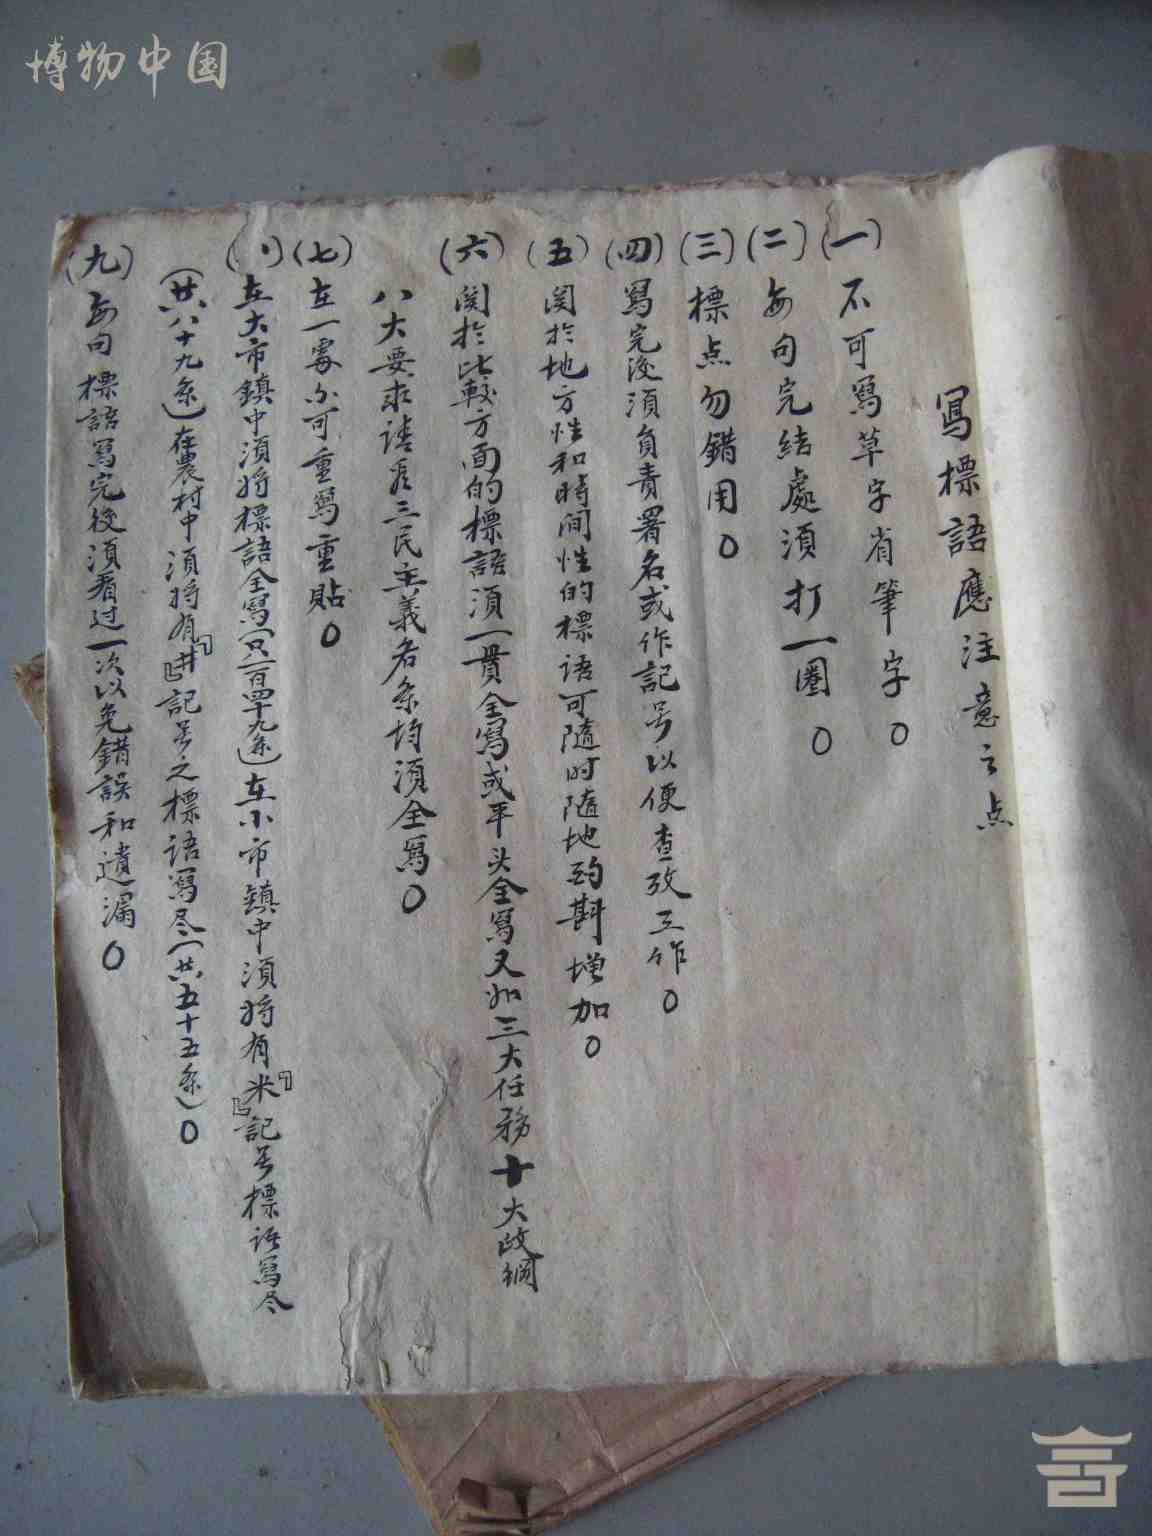 博物中国
寫標語應注意之点
(一)不可寫草字省筆字○
(二)每句完結處須打一圈○
(三)標点勿錯用○
(四)寫完後須負責署名或作記号以便查攷工作○
(五)関於地方性和時间性的標语可隨时隨地酌斟增加○
(六)関於比較方面的標語須一貫全寫或平头全寫又如三大任務十大政綱
八大要求请看三民主義各条均須全寫○
(七)在一處不可重寫重貼○
(八)在大市鎮中須將標語全寫(只一百四十九条)在小市鎮中須將有「米」記号標语寫尽
(共八十九条)在農村中須將有「井」記号之標语寫尽(共五十五条)○
(九)每句標語寫完後須看过一次以免錯誤和遺漏○